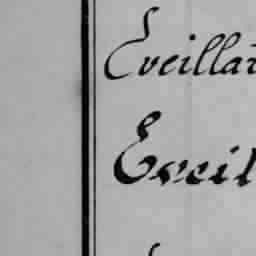 Eveillat
Eveil